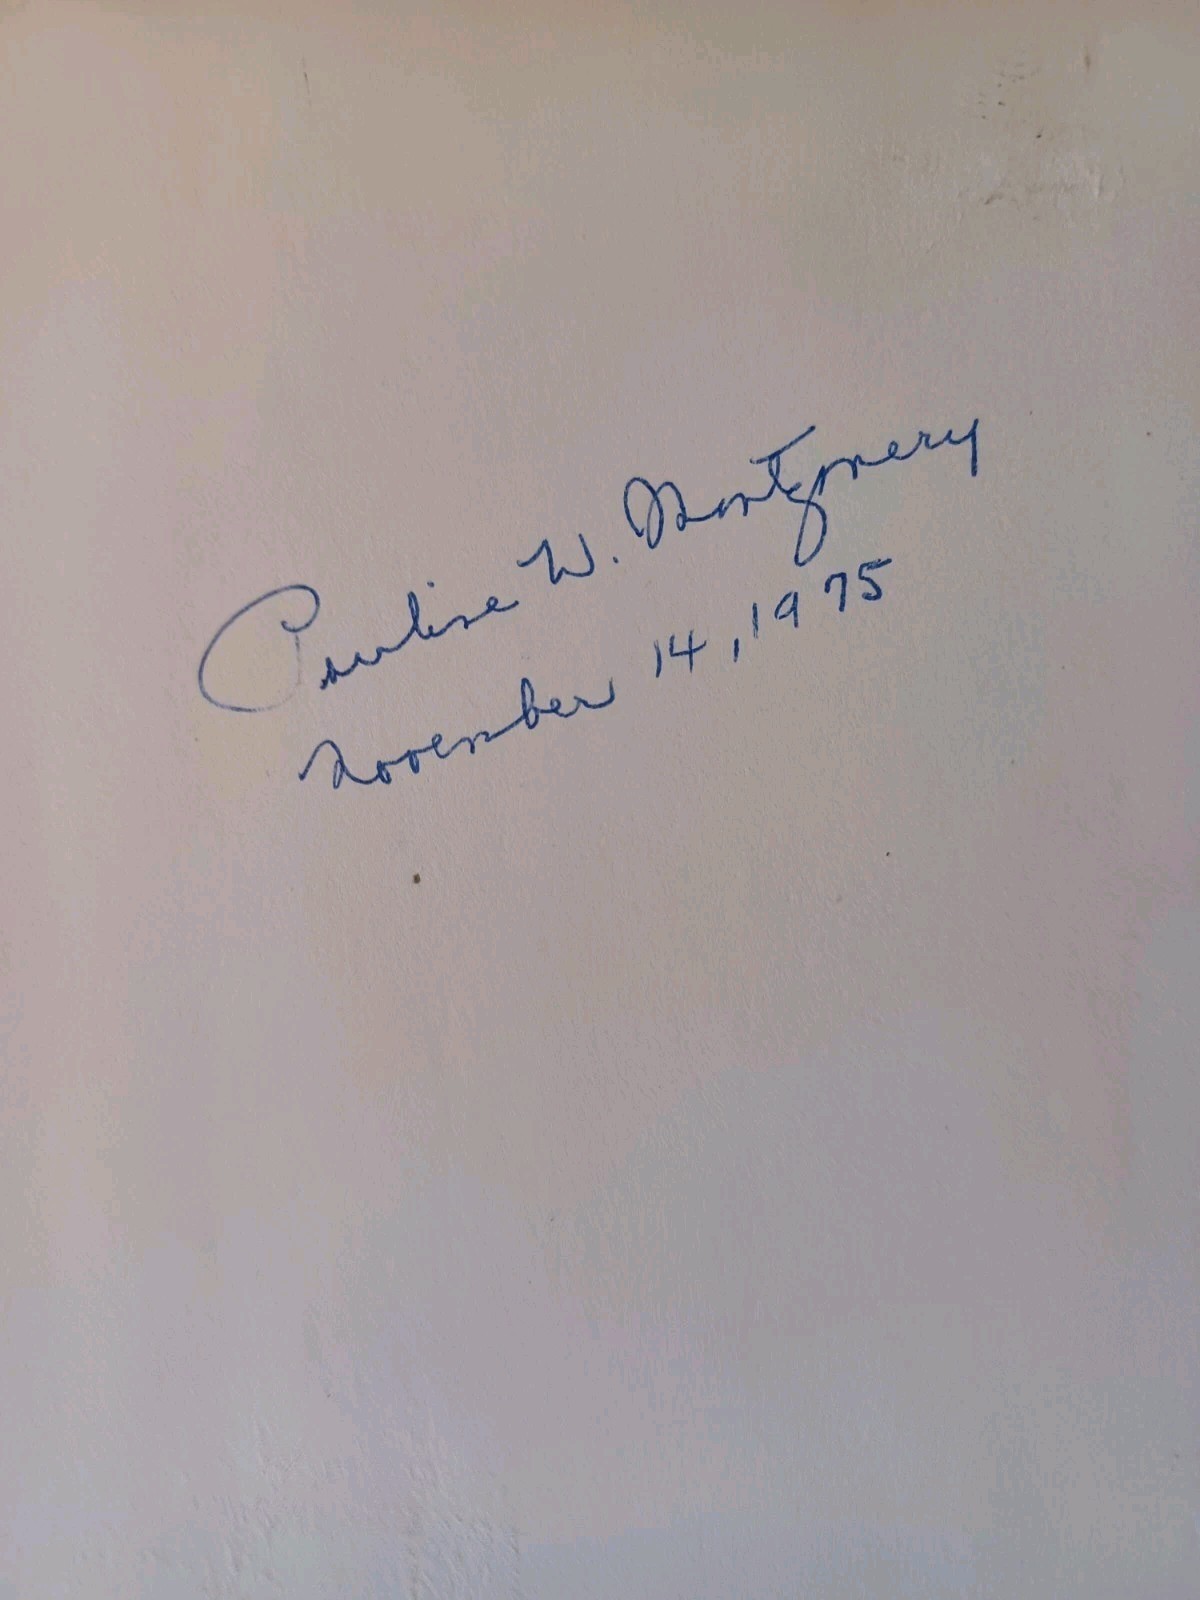 Pauline W. Montgomery
November 14, 1975